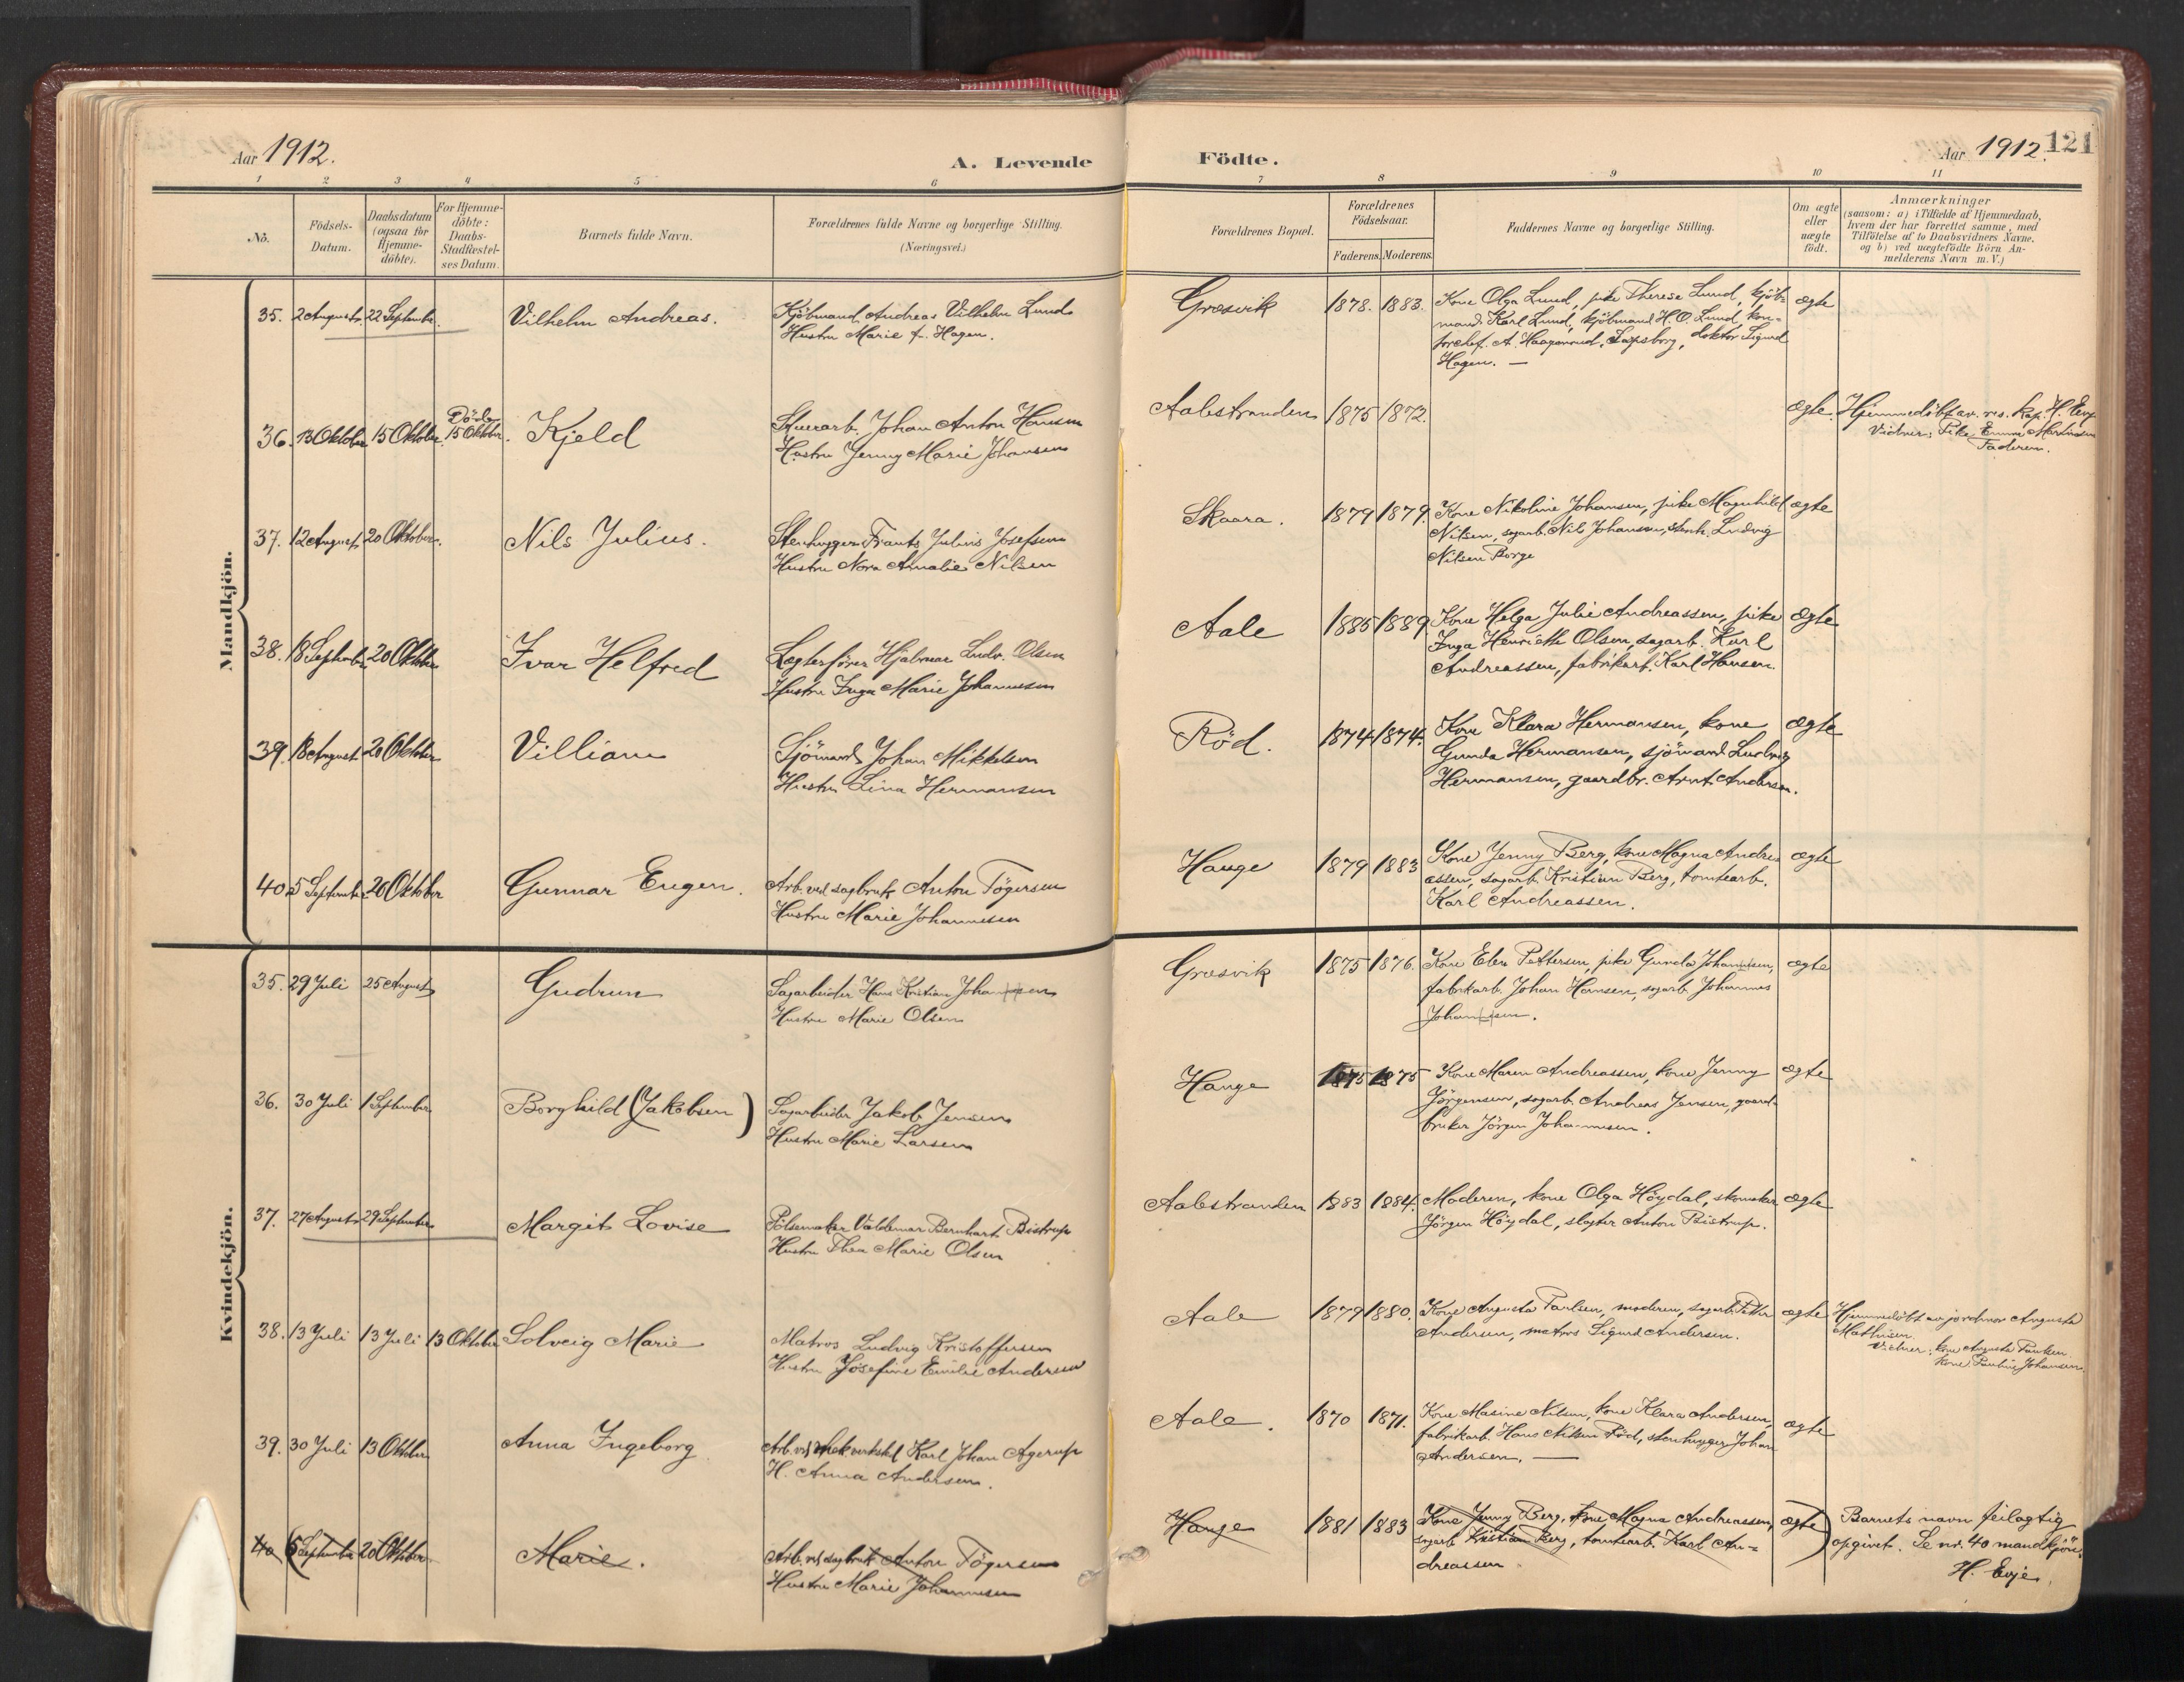 Aar 1912.
A. Levende
Födte.
Aar 1912.
121
1 2 3 4 5 6 7 8 9 10 11
No.
Födsels-
Datum.
Daabsdatum
(ogsaa for
Hjemme-
döbte).
For Hjemme-
döbte:
Daabs-
Stadfæstel-
ses Datum.
Barnets fulde Navn.
Forældrenes fulde Navne og borgerlige Stilling.
(Næringsvei.)
Forældrenes Bopæl.
Forældrenes
Födselsaar.
Faderens. Moderens.
Faddernes Navne og borgerlige Stilling.
Om ægte
eller
uægte
födt.
Anmærkninger
(saasom: a) i Tilfælde af Hjemmedaab,
hvem der har forrettet samme, med
Tilföielse af to Daabsvidners Navne,
og b) ved uægtefödte Börn An-
melderens Navn m.V.)
Mandkjön.
35. 2 August 22 September Vilhelm Andreas.
Kjöbmand Andreas Vilhelm Lund
Hustru Marie f. Hagen.
Græsvik 1878. 1883.
Kone Olga Lund, pike Therese Lund, kjöb-
mand Karl Lund, kjöbmand H. O. Lund, kon-
torchef A. Haagensrud, Sarpsborg, doktor Sigurd
Hagen. —
ægte
36. 13 Oktober 15 Oktober Död 15 Oktober. Kjeld
Stuerarb. Johan Anton Hansen
Hustru Jenny Marie Johansen
Aalestranden 1875 1872.
ægte.
Hjemmedöbt av res. kap. H. Evje
Vidner: Pike Emma Martinsen
Faderen.
37. 12 August 20 Oktober. Nils Julius.
Stenhugger Frants Julius Josefsen
Hustru Nora Amalie Nilsen
Skaara. 1879 1879.
Kone Nikoline Johansen, pike Magnhild
Nilsen, sagarb. Nils Johansen, stenh. Ludvig
Nilsen Borge
ægte
38. 18 September 20 Oktober Ivar Helfred
Lægterförer Hjalmar Ludv. Olsen
Hustru Inga Marie Johannesen
Aale 1885 1889
Kone Helga Julie Andreassen, pike
Inga Henriette Olsen, sagarb. Karl
Andreassen, fabrikarb. Karl Hansen.
Ægte
39. 18 August 20 Oktober Villiam
Sjömand Johan Mikkelsen
Hustru Lina Hermansen
Röd. 1874 1874.
Kone Klara Hermansen, kone
Gunda Hermansen, sjömand Ludvig
Hermansen, gaardbr. Arnt Andersen.
Ægte
40. 5 September 20 Oktober Gunnar Eugen.
Arb. ved sagbruk Anton Tögersen
Hustru Marie Johannesen
Hauge 1879 1883
Kone Jenny Berg, kone Magna Andre-
assen, sagarb. Kristian Berg, tomtearb.
Karl Andreassen.
ægte
Kvindekjön.
35. 29 Juli 25 August Gudrun
Sagarbeider Hans Kristian Johansen
Hustru Marie Olsen
Græsvik 1875 1876.
Kone Elen Pettersen, pike Gunda Johannesen,
fabrikarb. Johan Hansen, sagarb. Johannes
Johansen.
ægte
36. 30 Juli 1 September Borghild (Jakobsen)
Sagarbeider Jakob Jensen
Hustru Marie Larsen
Hauge 1875 1875
Kone Maren Andreassen, kone Jenny
Jörgensen, sagarb. Andreas Jensen, gaard-
bruker Jörgen Johannesen.
ægte
37. 27 August 29 September Margit Lovise
Pölsemaker Valdemar Bernhart Bistrup
Hustru Thea Marie Olsen
Aalestranden 1883 1884.
Moderen, kone Olga Höydal, skomaker
Jörgen Höydal, slagter Anton Bistrup.
ægte
38. 13 Juli 13 Juli 13 Oktober Solveig Marie
Matros Ludvig Kristoffersen
Hustru Josefine Emilie Andersen
Aale 1879 1880.
Kone Augusta Paulsen, moderen, sagarb. Petter
Andersen, matros Sigurd Andersen.
ægte
Hjemmedöbt av jordmor Augusta
Mathisen.
Vidner: kone Augusta Paulsen.
kone Pauline Johansen
39. 30 Juli 13 Oktober Anna Ingeborg
Arb. ved mek. verksted Karl Johan Agerup
H. Anna Andersen.
Aale. 1870 1871.
Kone Masine Nilsen, kone Klara Andersen,
fabrikarb. Hans Nilsen Röd, stenhugger Johan
Andersen. —
ægte
40 (5 September 20 Oktober Marie.
Arb. ved sagbruk Anton Tögersen
Hustru Marie Johannesen
Hauge 1881 1883
Kone Jenny Berg, kone Magna Andreassen,
sagarb. Kristian Berg, tomtearb. Karl An-
dreassen
ægte)
Barnets navn feilagtig
opgivet. Se nr. 40 mandkjön.
H. Evje.